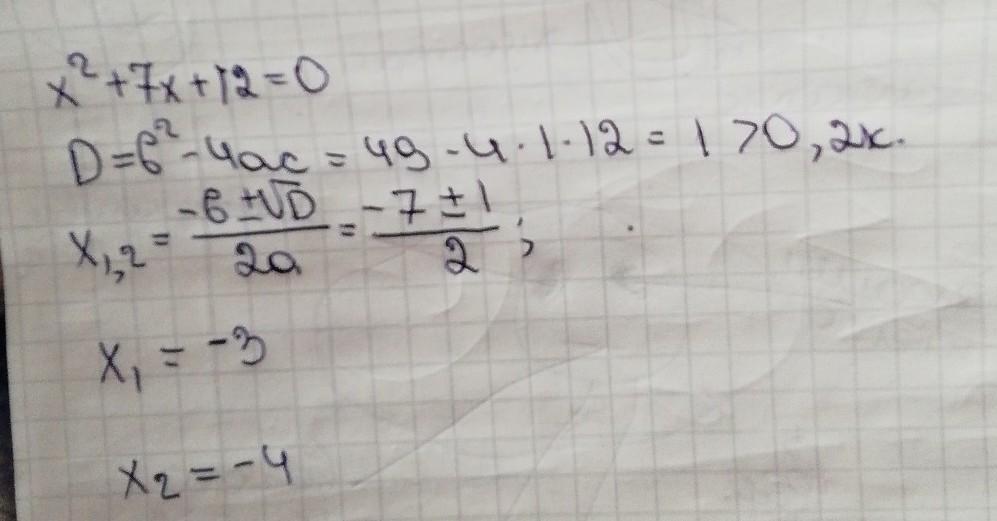 x² + 7x + 12 = 0
D = b² - 4ac = 49 - 4 · 1 · 12 = 1 > 0, 2к.
x₁,₂ = (-b ± √D)/(2a) = (-7 ± 1)/2;
x₁ = -3
x₂ = -4